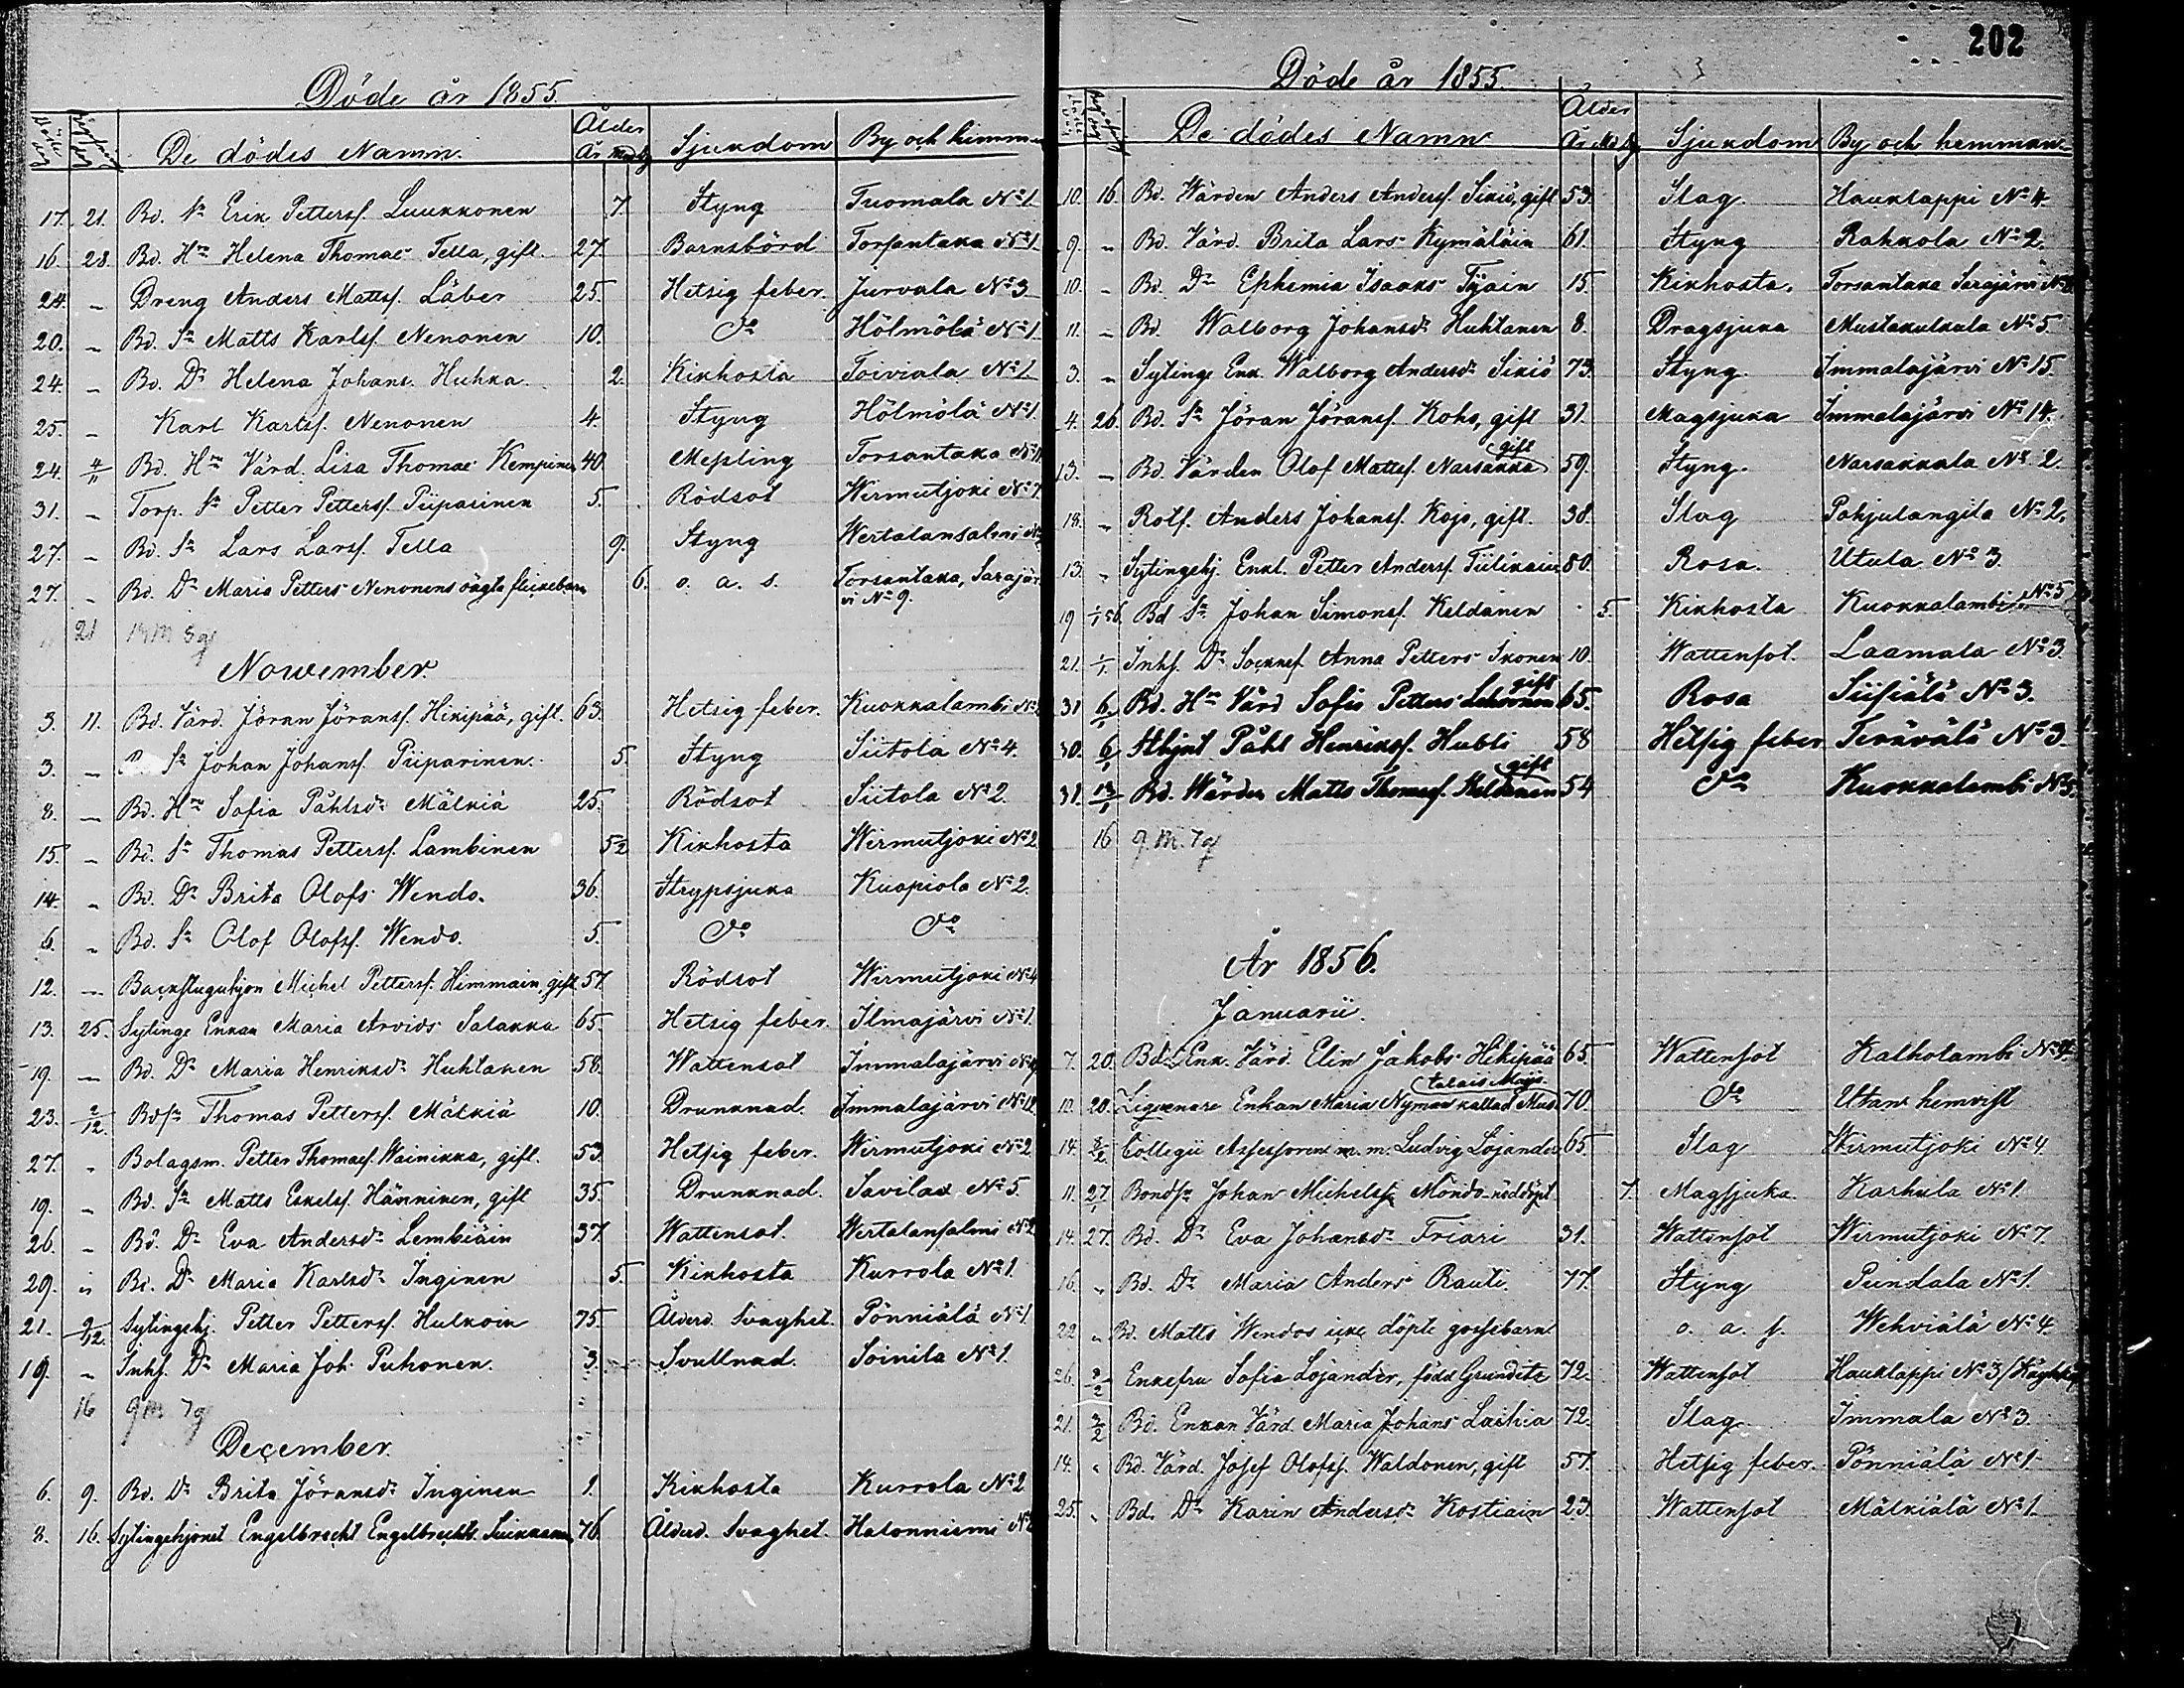 Döde år 1855.
De dödes Namn. Ålder År Sjukdom By och hemman
17. 21. Bd. Sn Erik Pettersf. Luukkonen 7. Styng Tuomala No 1
16. 28. Bd. Hn Helena Thomae Tella, gift. 27. Barnsbörd Torsantaka No 1
24. - Dreng Anders Mattsf. Läber 25. Hetsig feber. Jurvala No 3
20. - Bd. Sn Matts Karlsf. Nenonen 10. Do Hölmölä No 1
24. - Bd. Dr Helena Johans. Huhka 2. Kikhosta Toiviala No 1
25. - Karl Karlsf. Nenonen 4. Styng Hölmölä No 1.
24. 4/11 Bd. Hn Värd. Lisa Thomae Kempinen 40. Messling Torsantaka
31. - Torp. Sn Petter Pettersf. Piiparinen 5. Rödsot Wirmutjoki No 7
27. - Bd. Sn Lars Larsf. Tella 9. Styng Wertalansalmi
27. - Bd. Dr Maria Petters Nenonens oägta flickebarn 6. o. a. s. Torsantaka, Sarajär-
vi No 9.
21
November.
3. 11. Bd. Värd. Jöran Jöransf. Hikipää, gift. 63. Hetsig feber. Kuokkalambi
3. - Sn Johan Johansf. Piiparinen. 5. Styng Siitola No 4.
8. - Bd. Hn Sofia Påhlsdr Mälkiä 25. Rödsot Siitola No 2.
15. - Bd. Sn Thomas Pettersf. Lambinen 5 1/2 Kikhosta Wirmutjoki No 2
14. - Bd. Dr Brita Olofs Wendo. 36. Strypsjuka Kuopiola No 2.
6. - Bd. Sn Olof Olofsf. Wendo. 5. Do Do
12. - Backstuguhjon Michel Pettersf. Himmain, gift. 57 Rödsot Wirmutjoki No 4
13. 25. Sytinge Enkan Maria Arvids Salakka 65. Hetsig feber. Ilmajärvi No 1.
19. - Bd. Dr Maria Henriksdr Huhtanen 58. Wattensot Immalajärvi
23. 2/12. Bdsn Thomas Pettersf. Mälkiä 10. Drunknad. Immalajärvi No 12
27. - Bolagsm. Petter Thomaef. Wainikka, gift. 53 Hetsig feber. Wirmutjoki No 2
19. - Bd. Sn Matts Eskelsf. Hänninen, gift 35. Drunknad. Savilax No 5.
26. - Bd. Dr Eva Andersdr Lembiäin 37 Wattensot. Wertalansalmi No 2
29. - Bd. Dr Maria Karlsdr Inginen 5. Kikhosta Kurrola No 1.
21. 2/12. Sytingehj. Petter Pettersf. Hulkoin 75 Ålderd. Svaghet. Pönniälä No 1
19. - Inhs. Dr Maria Joh. Puhonen. 3. Svullnad. Soinila No 1.
16 9 m 7 q
December.
6. 9. Bd. Dr Brita Jöransdr Inginen 1. Kikhosta Kurrola No 2
8. 16. Sytingehjonet Engelbrecht Engelbrechts. 76. Ålderd. Svaghet. Hatonniemi
202
Döde år 1855.
De dödes Namn Ålder År Md Dg Sjukdom By och hemman
10. 16. Bd. Wärden Anders Andersf. Sikiö, gift 53. Slag. Hauklappi No 4.
9. - Bd. Värd. Brita Lars Kymäläin 61. Styng Rahkola No 2.
10. - Bd. Dr Ephemia Isaaks Tijain 15. Kikhosta. Torsantaka Sarajärvi
11. - Bd. Walborg Johansdr Huhtanen 8. Dragsjuka Mustakulkula No 5
3. - Sytinge Enk. Walborg Andersdr Sikiö 73. Styng. Immalajärvi No 15.
4. 26. Bd. Sn Jöran Jöransf. Koho, gift 31. Magsjuka Immalajärvi No 14.
13. - Bd. Värden Olof Mattsf. Narsakka gift 59. Styng. Narsakkala No 2.
18. - Rotf. Anders Johansf. Kojo, gift. 38. Slag Pohjulangila No 2.
13. - Sytingehj. Enkl. Petter Andersf. Tiilikain 80. Rosa. Utula No 3.
19 1/1 56. Bd Sn Johan Simonsf. Keldänen 5. Kikhosta Kuokkalambi No 5
21. 1/1 Inhs. Dr Socknef. Anna Petters Ikonen 10. Wattensot. Laamala No 3.
31 6/1 Bd. Hn Värd Sofia Petters Lehsonen gift 65. Rosa Siisiälä No 3.
30. 6/1 Sthjnt Påhl Henriksf. Hubli 58 Hetsig feber Terävälä No 3.
31. 13/1 Bd. Wärden Matts Thomasf. Keldänen gift 54 Do Kuokkalambi No 5.
16 9 m. 7 q
År 1856.
Januarii.
7. 20. Bd. Enk. Värd. Elin Jakobs Hikipää 65. Wattensot Kalholambi
12. 20. Ligvenare Enkan Maria Nyman kallad 70. Do Utan hemvist
14. 8/2 Collegii Assessoren m. m. Ludvig Lojander 65. Slag Wirmutjoki No 4
11. 27/1 Bondsn Johan Michelssn Mondo nöddöpt 7. Magsjuka. Karhula No 1
14. 27. Bd. Dr Eva Johansdr Friari 31. Wattensot Wirmutjoki No 7
16. - Bd. Dr Maria Anders Rauti. 77. Styng Pundala No 1.
22 - Bd. Matts Wendos icke döpte gossebarn o. a. s. Wehviälä No 4.
26. 3/2 Enkefru Sofia Lojander, född Grundetz 72. Wattensot Hauklappi No 3
21. 3/2 Bd. Enkan Värd. Maria Johans Lachia 72. Slag. Immala No 3.
14. - Bd. Värd. Josef Olofsf. Waldonen, gift 57. Hetsig feber. Pönniälä No 1.
25. - Bd. Dr Karin Andersdr Kostiain 23. Wattensot Mälkiälä No 1.